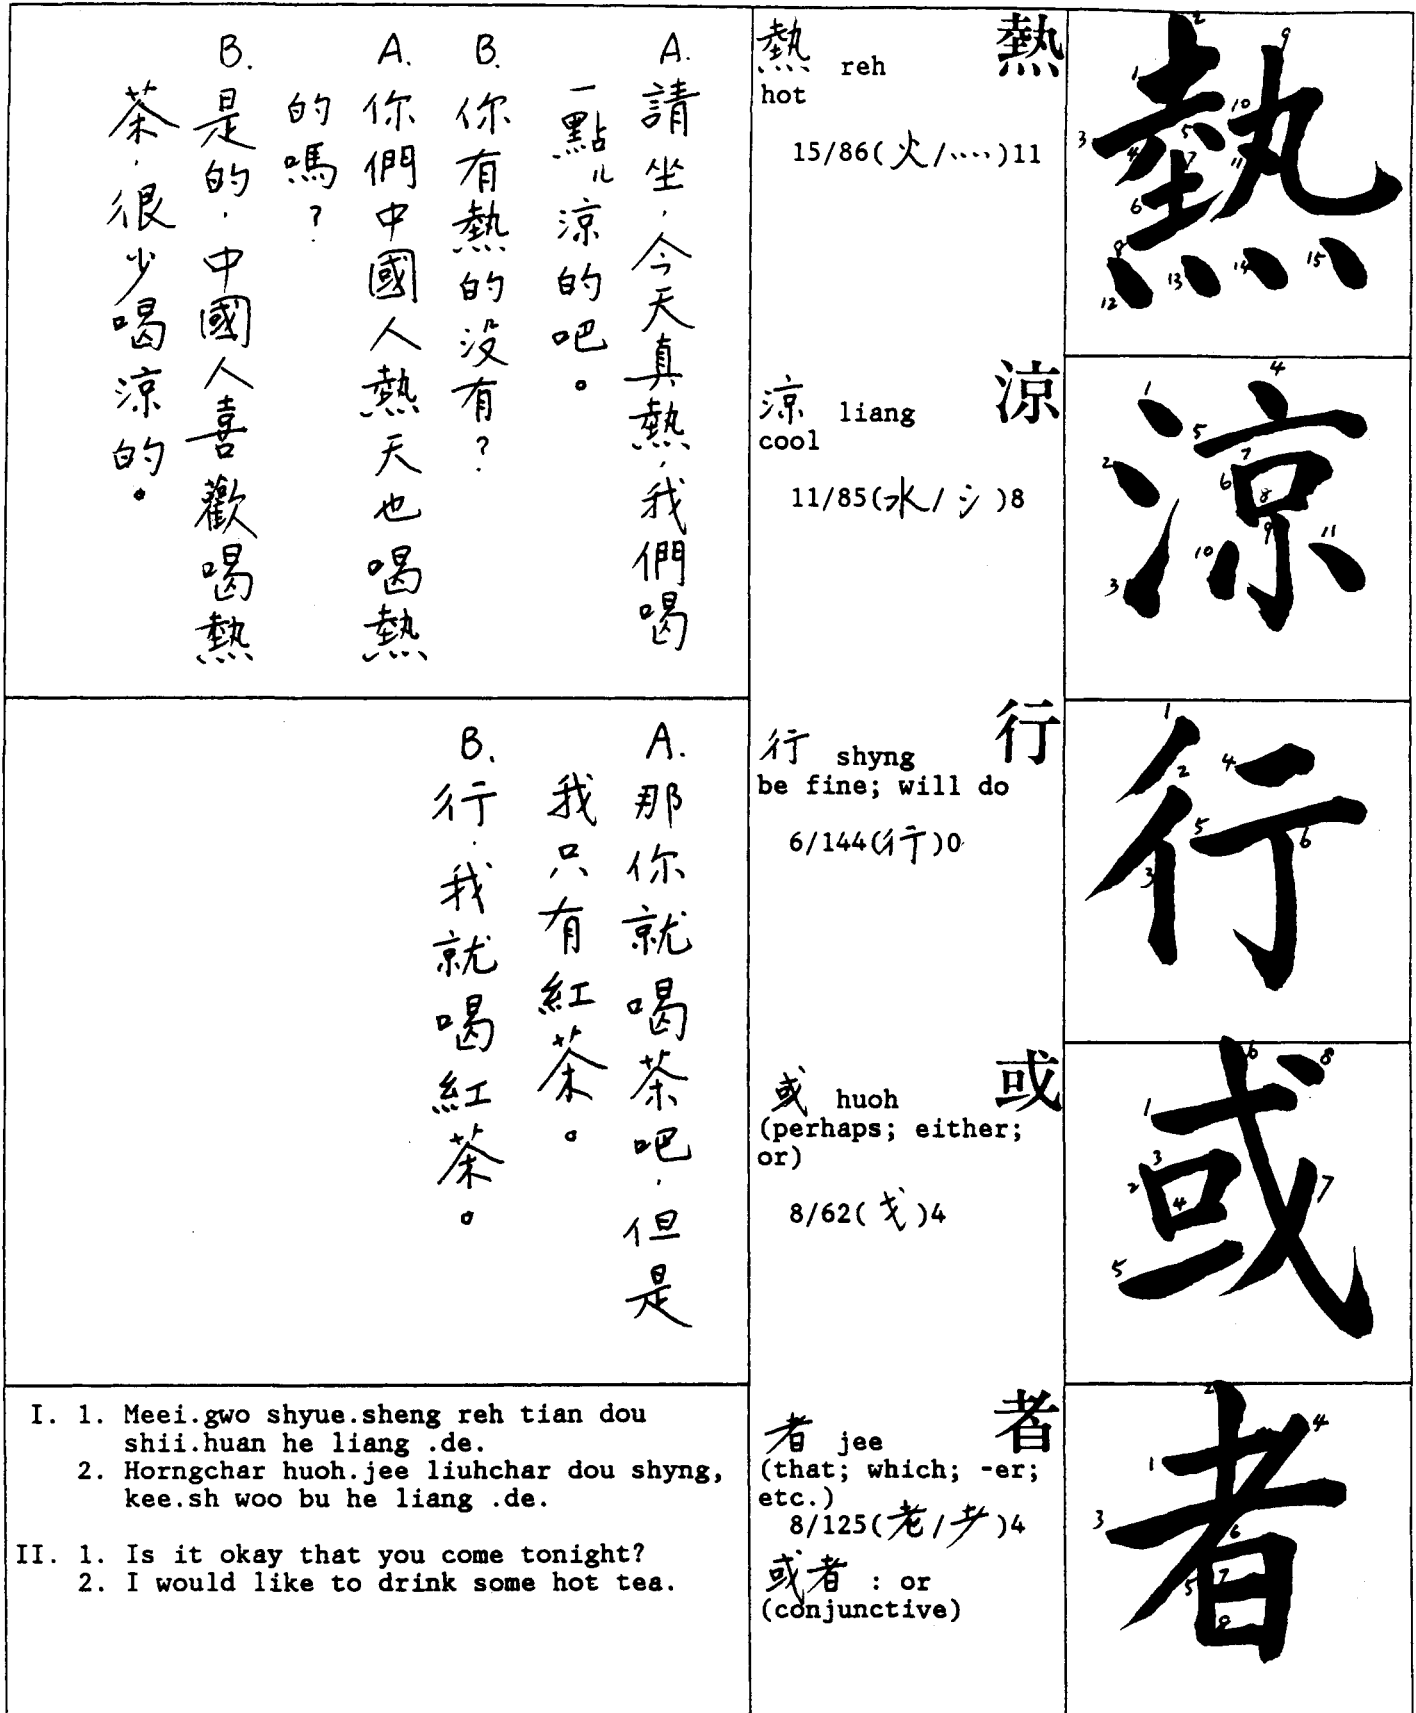 A. 請坐，今天真熱，我們喝
一點儿涼的吧。
B. 你有熱的没有？
A. 你們中國人熱天也喝熱
的嗎？
B. 是的，中國人喜歡喝熱
茶，很少喝涼的。
A. 那你就喝茶吧，但是
我只有紅茶。
B. 行，我就喝紅茶。
I. 1. Meei.gwo shyue.sheng reh tian dou
shii.huan he liang .de.
2. Horngchar huoh.jee liuhchar dou shyng,
kee.sh woo bu he liang .de.
II. 1. Is it okay that you come tonight?
2. I would like to drink some hot tea.
熱 reh 熱
hot
15/86(火/灬)11
涼 liang 涼
cool
11/85(水/氵)8
行 shyng 行
be fine; will do
6/144(行)0
或 huoh 或
(perhaps; either;
or)
8/62(戈)4
者 jee 者
(that; which; -er;
etc.)
8/125(老/耂)4
或者 : or
(conjunctive)
熱
1 2 3 4 5 6 7 8 9 10 11 12 13 14 15
涼
1 2 3 4 5 6 7 8 9 10 11
行
1 2 3 4 5 6
或
1 2 3 4 5 6 7 8
者
1 2 3 4 5 6 7 8